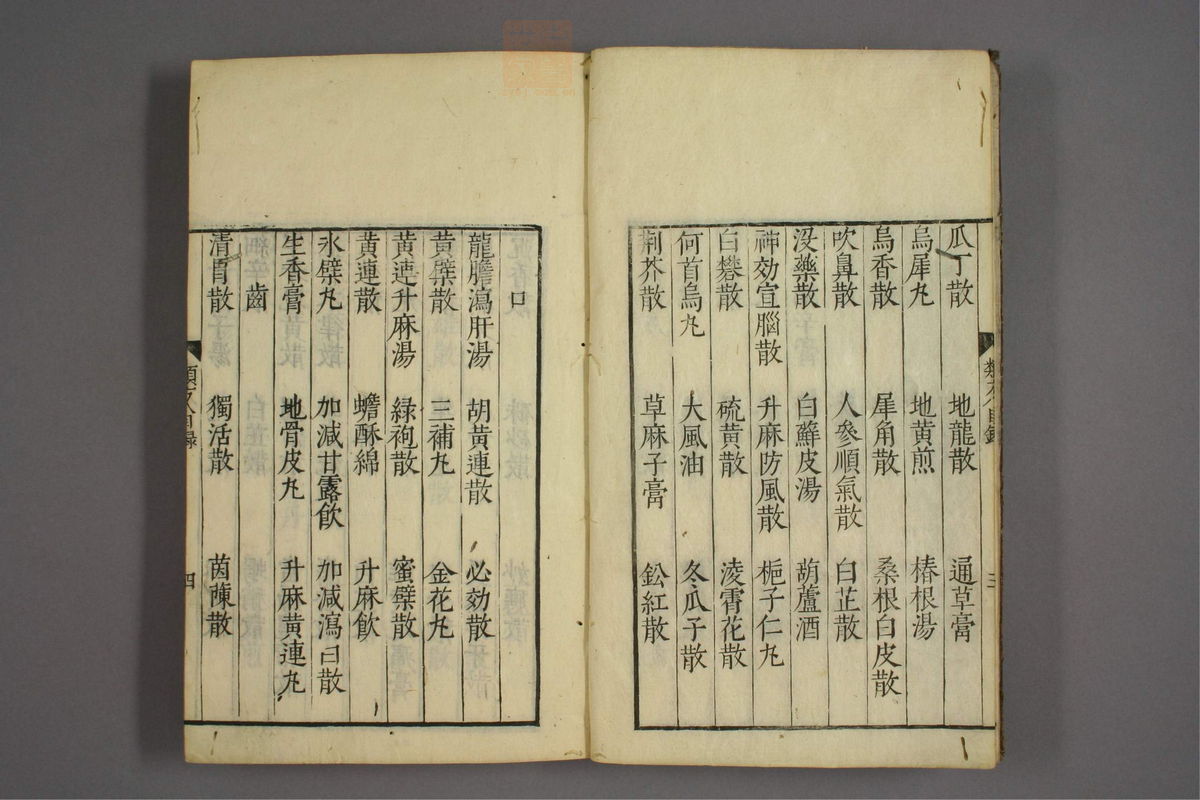 瓜丁散 地龍散 通草膏
烏犀丸 地黃煎 椿根湯
烏香散 犀角散 桑根白皮散
吹鼻散 人參順氣散 白芷散
没藥散 白蘚皮湯 葫蘆酒
神効宣腦散 升麻防風散 梔子仁丸
白礬散 硫黃散 淩霄花散
何首烏丸 大風油 冬瓜子散
荊芥散 草麻子膏 鈆紅散
三
口
龍膽瀉肝湯 胡黃連散 必効散
黃檗散 三補丸 金花丸
黃連升麻湯 綠袍散 蜜檗散
黃連散 蟾酥綿 升麻飲
氷檗丸 加減甘露飲 加減瀉白散
生香膏 地骨皮丸 升麻黃連丸
齒
清胃散 獨活散 茵蔯散
四